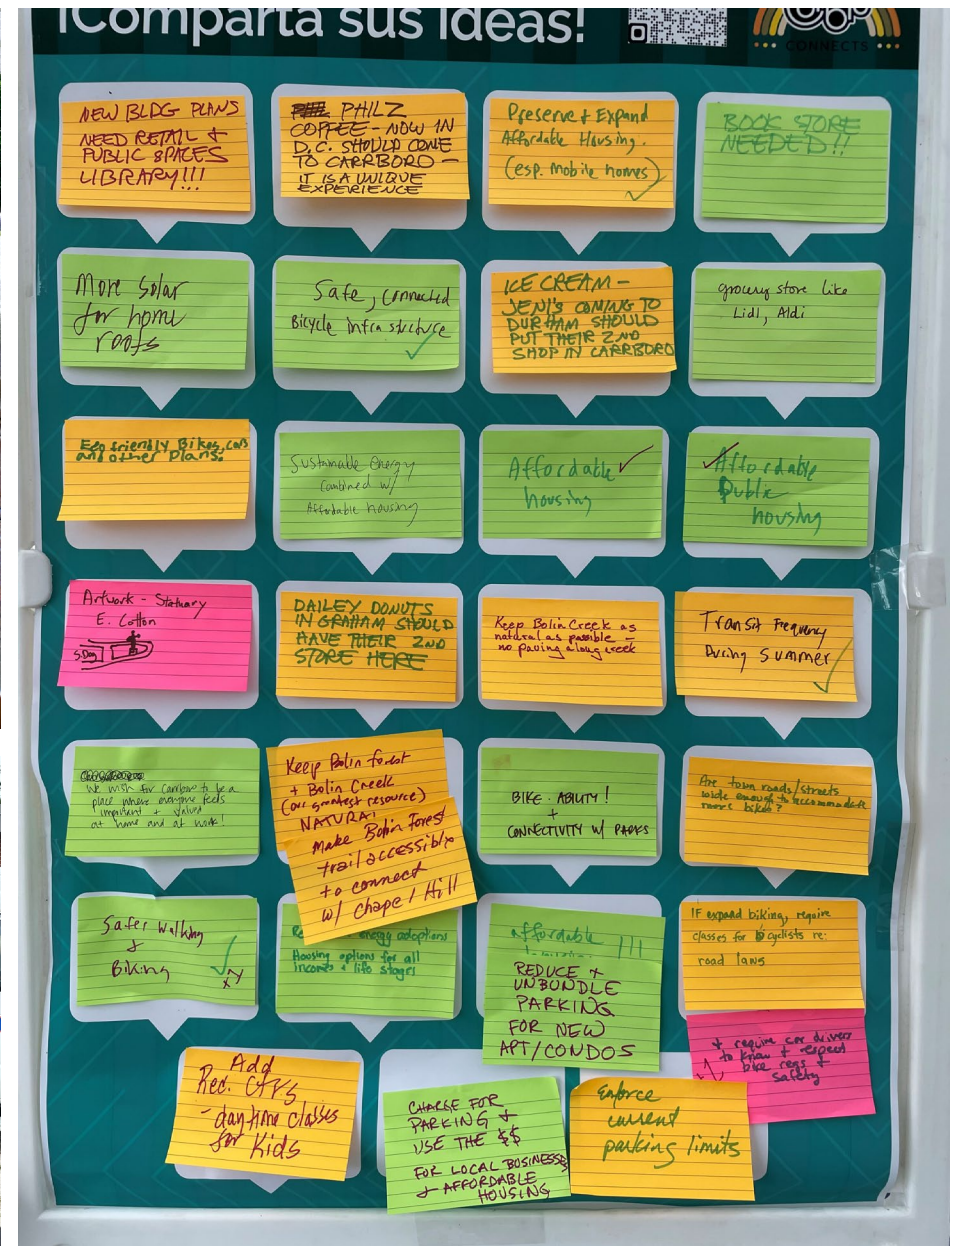 ¡Comparta sus ideas!
CONNECTS
NEW BLDG PLANS
NEED RETAIL &
PUBLIC SPACES
LIBRARY!!!
PHILZ
COFFEE - NOW IN
D.C. SHOULD COME
TO CARRBORO -
IT IS A UNIQUE
EXPERIENCE
Preserve & Expand
Affordable Housing.
(esp. mobile homes)
BOOK STORE
NEEDED!!
More Solar
for home
roofs
Safe, connected
Bicycle infrastructure
ICE CREAM -
JENI'S COMING TO
DURHAM SHOULD
PUT THEIR 2ND
SHOP IN CARRBORO
grocery store like
Lidl, Aldi
Eco friendly Bikes, cars
and other plans.
Sustainable energy
combined w/
Affordable housing
Affordable
housing
Affordable
Public
housing
Artwork - Statuary
E. Cotton
S. Dog
DAILEY DONUTS
IN GRAHAM SHOULD
HAVE THEIR 2ND
STORE HERE
Keep Bolin Creek as
natural as possible -
no paving along creek
Transit Frequency
During Summer
We wish for Carrboro to be a
place where everyone feels
important & valued
at home and at work!
Keep Bolin forest
+ Bolin Creek
(our greatest resource)
NATURAL
Make Bolin Forest
trail accessible
to connect
w/ Chapel Hill
BIKE-ABILITY!
+
CONNECTIVITY W/ PARKS
Are town roads/streets
wide enough to accommodate
more bikes?
Safer Walking
&
Biking
energy adoptions
Housing options for all
incomes & life stages
affordable !!!
REDUCE &
UNBUNDLE
PARKING
FOR NEW
APT/CONDOS
IF expand biking, require
classes for bicyclists re:
road laws
& require car drivers
to know & respect
bike regs &
safety
Add
Rec. CTRS
- daytime classes
for Kids
CHARGE FOR
PARKING &
USE THE $$
FOR LOCAL BUSINESSES
& AFFORDABLE
HOUSING
Enforce
current
parking limits